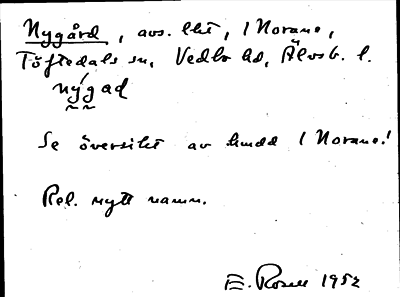 Nygård, avs. lht, 1 Norane,
Töftedals sn, Vedbo hd, Älvsb. l.
nýgad
Se översikt av hmdd 1 Norane!
Rel. nytt namn.
E. Rosell 1952